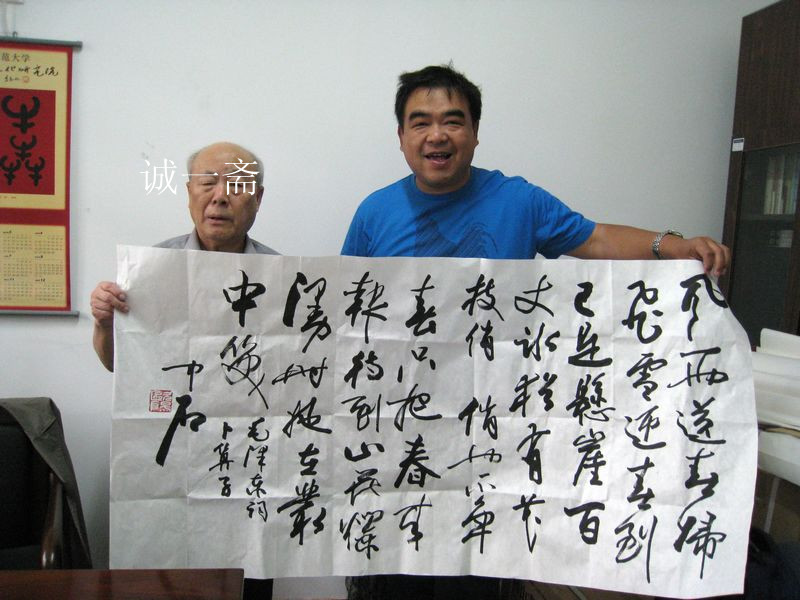 诚一斋
范大学
风雨送春歸
飞雪迎春到
已是懸崖百
丈冰猶有花
枝俏 俏也不争
春只把春来
報待到山花爛
漫时她在叢
中笑
毛泽东词
卜算子
中石